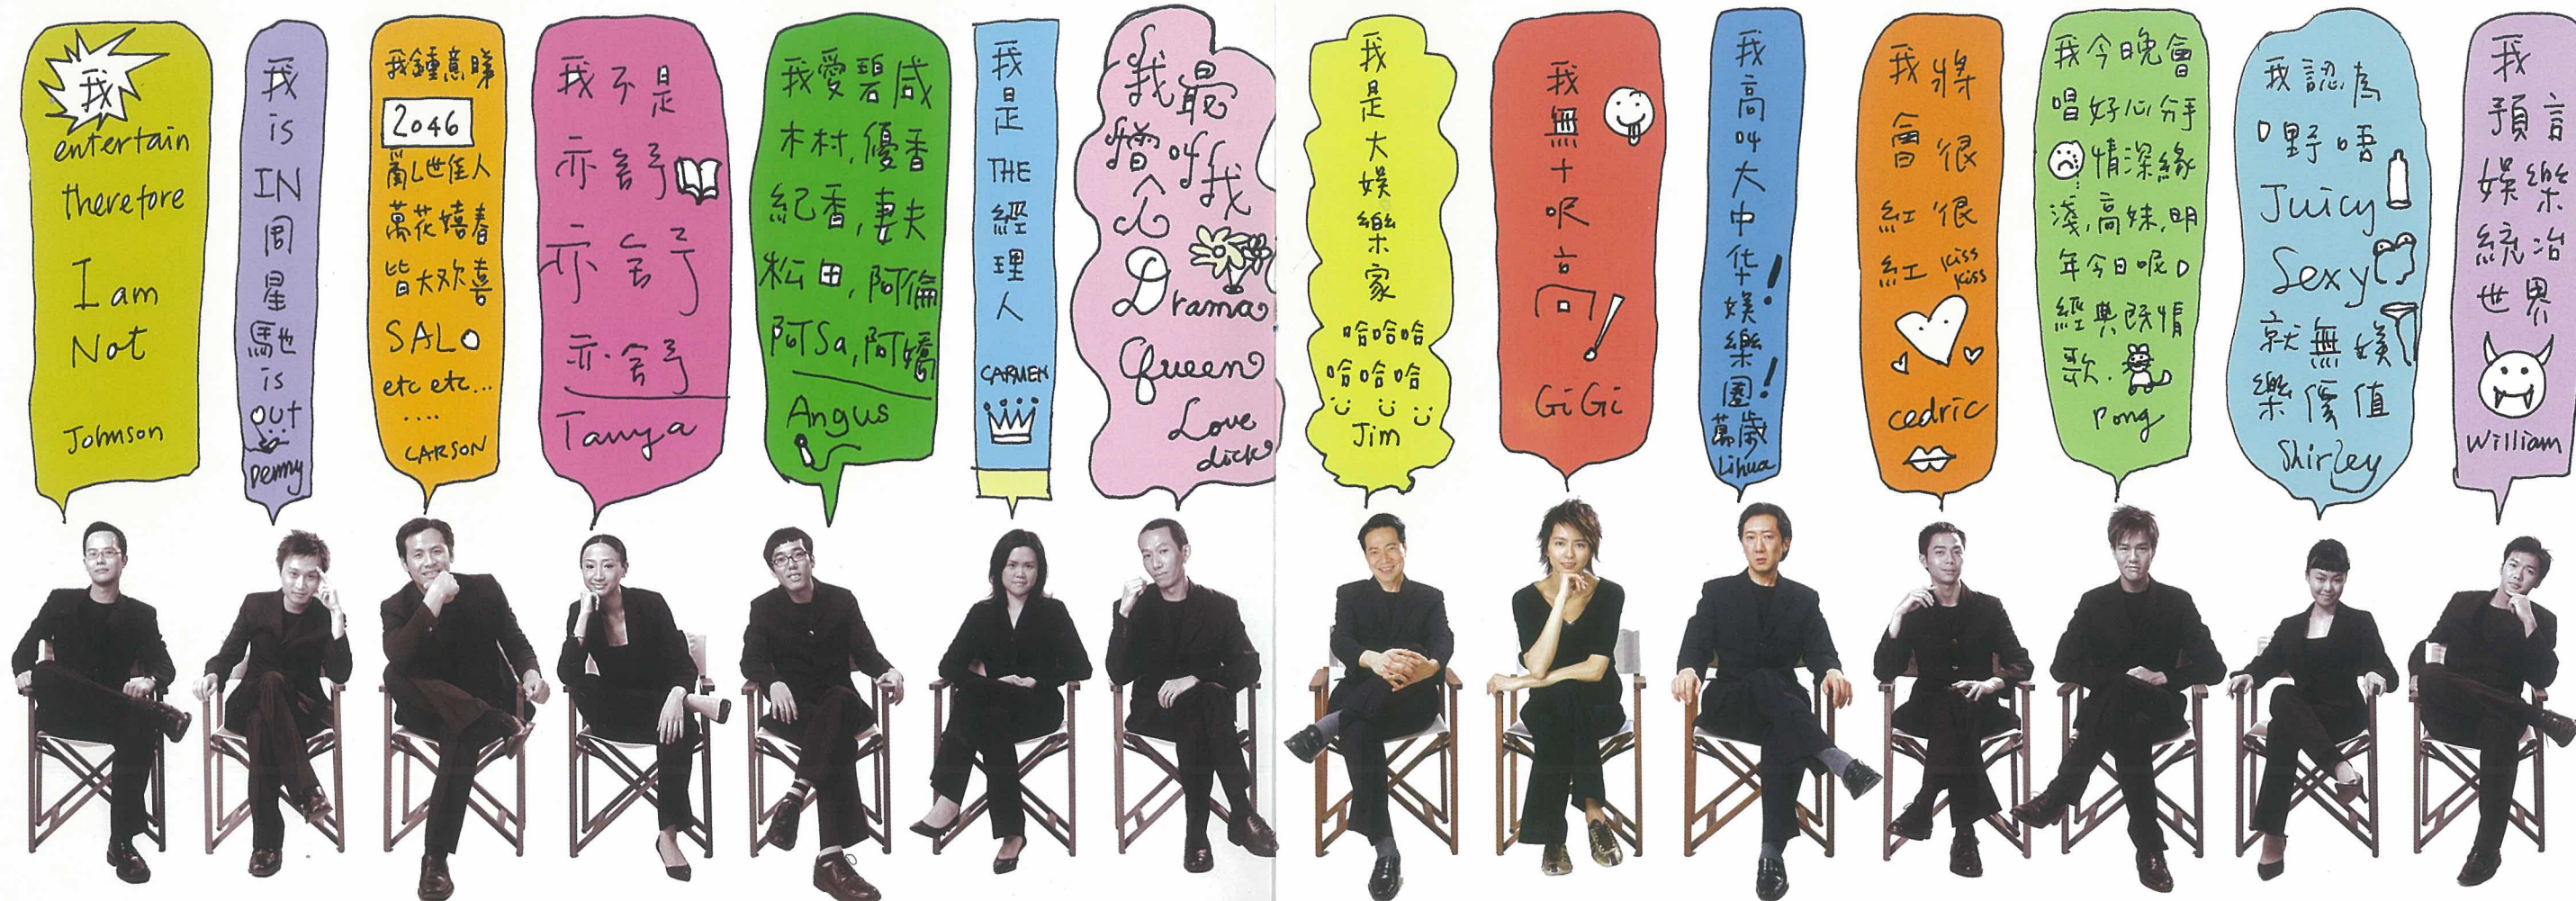 我
entertain
therefore
I am
Not
Johnson
我
is
IN
周
星
馳
is
out
Penny
我鍾意睇
2046
亂世佳人
萬花嬉春
皆大欢喜
SALO
etc etc...
....
CARSON
我不是
亦舒
亦舒
亦舒
Tanya
我愛碧咸
木村,優香
紀香,妻夫
松田,阿倫
阿Sa,阿嬌
Angus
我
是
THE
經
理
人
CARMEN
我最
憎叫我
做
Drama
Queen
Love
dick
我
是
大
娛
樂
家
哈哈哈
哈哈哈
Jim
我
無
十
呎
高
!
GiGi
我
高
叫
大
中
华!
娛
樂!
圈
萬歲
Lihua
我將
會很
紅很
紅 kiss kiss
cedric
我今晚會
唱好心分手
情深緣
淺,高妹,明
年今日呢D
經典既情
歌.
Pong
我認為
D野唔
Juicy
Sexy
就無娛
樂價值
Shirley
我
預言
娛樂
統治
世界
William